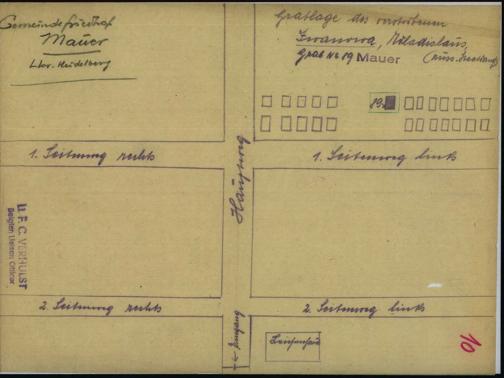 Gemeindefriedhof
Mauer
Lkr. Heidelberg
Grablage des verstorbenen
Iwanowa, Wladislaus,
Grab Nr 19 Mauer
19.
1. Seitenweg rechts
1. Seitenweg links
Hauptweg
Lt F. C. VERHULST
Belgian Liaison Officer
2. Seitenweg rechts
2. Seitenweg links
← Eingang
Leichenhaus
10